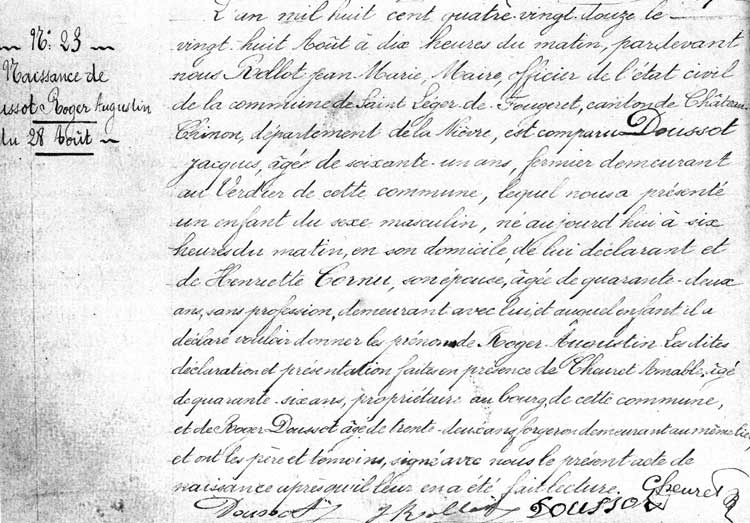 N: 23
Naissance de
ussot Roger Augustin
du 28 Août
L'an mil huit cent quatre-vingt douze le
vingt-huit Août à dix heures du matin, par devant
nous Rollot Jean Marie, Maire, officier de l'état civil
de la commune de Saint Léger-de-Fougeret, canton de Château
Chinon, département de la Nièvre, est comparu Doussot
Jacques, âgé de soixante-un ans, fermier demeurant
au Verdier de cette commune, lequel nous a présenté
un enfant du sexe masculin, né aujourd'hui à six
heures du matin, en son domicile, de lui déclarant et
de Henriette Cornu, son épouse, âgée de quarante-deux
ans, sans profession, demeurant avec lui, et auquel enfant il a
déclaré vouloir donner les prénoms de Roger Augustin Les dites
déclaration et présentation faites en présence de Cheuret Amable, âgé
de quarante-six ans, propriétaire au bourg de cette commune,
et de Roger Doussot âgé de trente-deux ans, forgeron demeurant au même lieu,
et ont les père et témoins, signé avec nous le présent acte de
naissance après qu'il leur en a été fait lecture. Cheuret
Doussot Rollot DOUSSOT